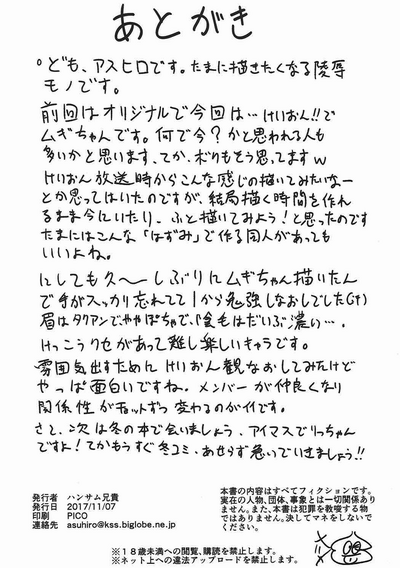 あとがき
ども、アスヒロです。たまに描きたくなる陵辱
モノです。
前回はオリジナルで今回は…けいおん!!で
ムギちゃんです。何で今?かと思われる人も
多いかと思います、てか、ボクもそう思ってますw
けいおん放送時からこんな感じの描いてみたいなー
とか思ってはいたのですが、結局描く時間を作れ
るまま今にいたり、ふと描いてみよう!と思ったのです
たまにはこんな「はずみ」で作る同人があっても
いいよね。
にしても久〜しぶりにムギちゃん描いたん
で手がスッカリ忘れてて1から勉強しなおしでした(汗)
眉はタクアンでややぽちゃで、陰毛はだいぶ濃い…。
けっこうクセがあって難し楽しいキャラです。
雰囲気出すためにけいおん観なおしてみたけど
やっぱ面白いですね。メンバーが仲良くなり
関係性がチョットずつ変わるのがイイです。
さて、次は冬の本で会いましょう、アイマスでりっちゃん
ですよ!てかもうすぐ冬コミ、あせらず急いでいきましょう!!
発行者 ハンサム兄貴
発行日 2017/11/07
印刷 PICO
連絡先 asuhiro@kss.biglobe.ne.jp
本書の内容はすべてフィクションです。
実在の人物、団体、事象とは一切関係あり
ません。また、本書は犯罪を教唆する物
ではありません。決してマネをしないで
ください。
※18歳未満への閲覧、購読を禁止します。
※ネット上への違法アップロードを禁止します。